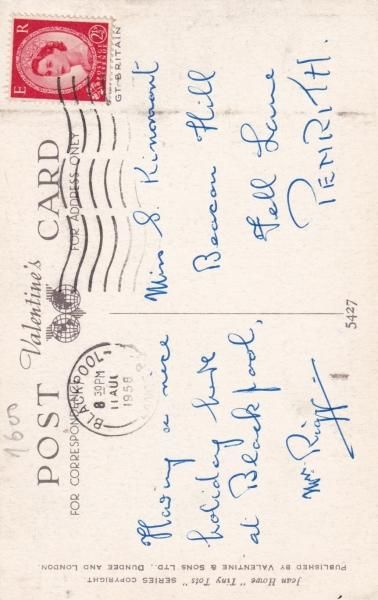 POST CARD
Valentine's
FOR CORRESPONDENCE
FOR ADDRESS ONLY
E R
POSTAGE
REVENUE
2½D
GT. BRITAIN
BLACKPOOL
8 30PM
11 AUG
1958
1600
Having a nice
holiday here
at Blackpool,
Mr Rigg
Miss S. Kinmont
Beacon Hill
Fell Lane
PENRITH.
5427
Jean Howe "Tiny Tots" SERIES COPYRIGHT
PUBLISHED BY VALENTINE & SONS LTD., DUNDEE AND LONDON.